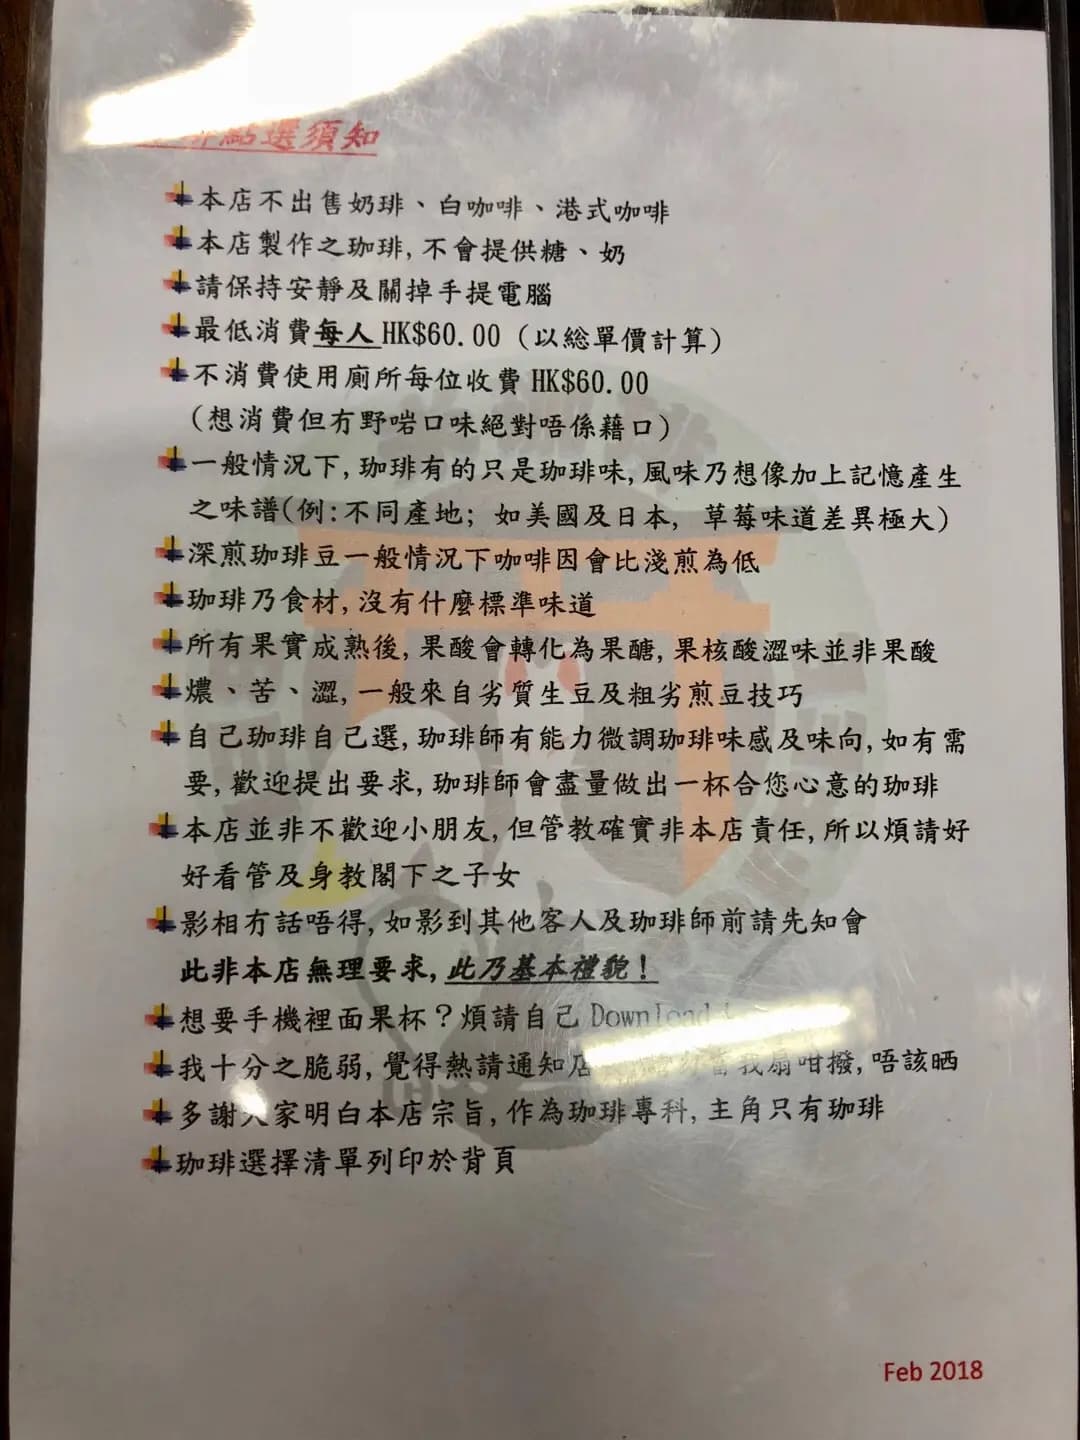 點選須知
本店不出售奶琲、白咖啡、港式咖啡
本店製作之珈琲, 不會提供糖、奶
請保持安靜及關掉手提電腦
最低消費每人 HK$60.00 (以総單價計算)
不消費使用廁所每位收費 HK$60.00
(想消費但冇野啱口味絕對唔係藉口)
一般情況下, 珈琲有的只是珈琲味, 風味乃想像加上記憶產生
之味譜(例: 不同產地; 如美國及日本, 草莓味道差異極大)
深煎珈琲豆一般情況下咖啡因會比淺煎為低
珈琲乃食材, 沒有什麼標準味道
所有果實成熟後, 果酸會轉化為果醣, 果核酸澀味並非果酸
燶、苦、澀, 一般來自劣質生豆及粗劣煎豆技巧
自己珈琲自己選, 珈琲師有能力微調珈琲味感及味向, 如有需
要, 歡迎提出要求, 珈琲師會盡量做出一杯合您心意的珈琲
本店並非不歡迎小朋友, 但管教確實非本店責任, 所以煩請好
好看管及身教閣下之子女
影相冇話唔得, 如影到其他客人及珈琲師前請先知會
此非本店無理要求, 此乃基本禮貌!
想要手機裡面果杯? 煩請自己 Download
我十分之脆弱, 覺得熱請通知店 我扇咁撥, 唔該晒
多謝大家明白本店宗旨, 作為珈琲專科, 主角只有珈琲
珈琲選擇清單列印於背頁
Feb 2018